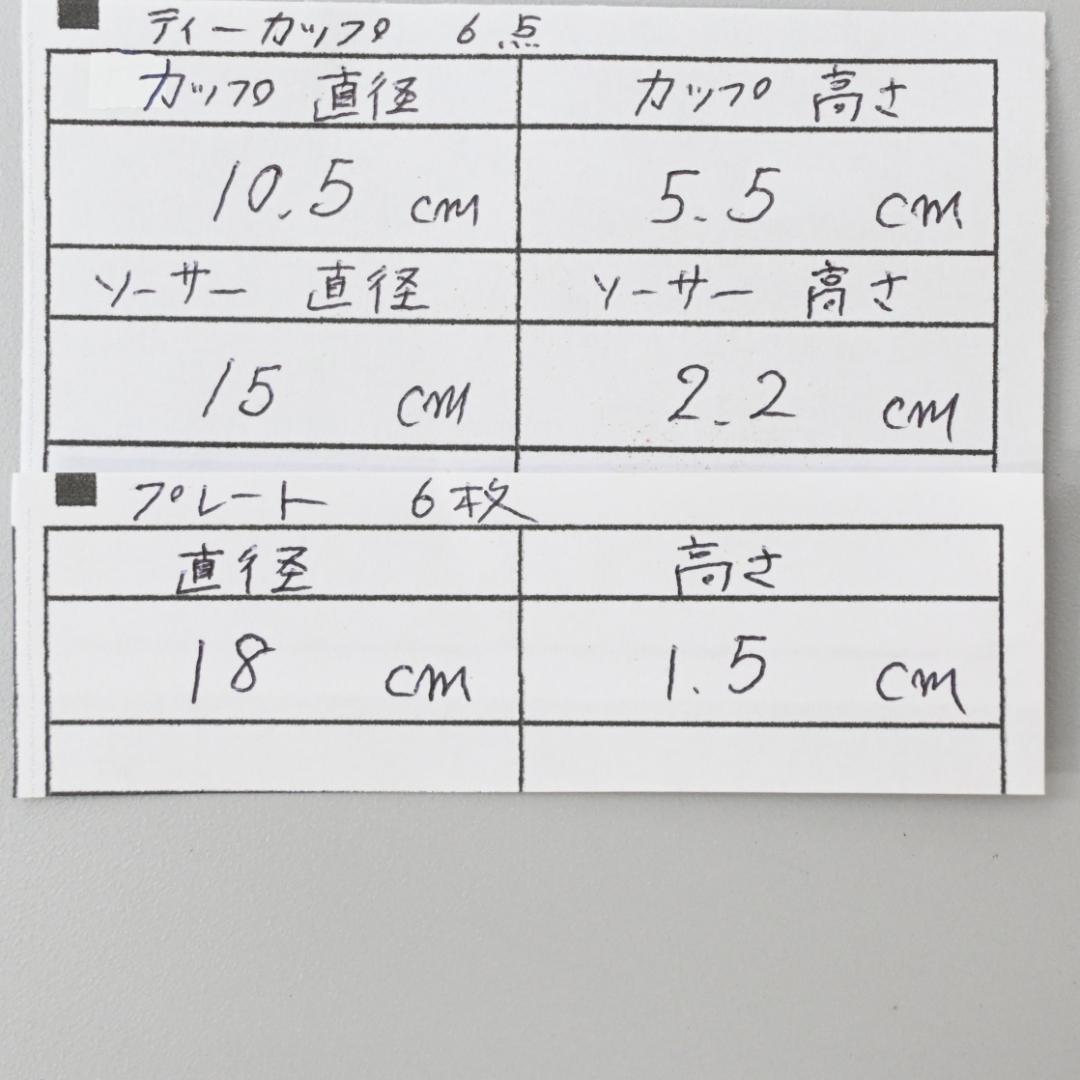 ■ ティーカップ 6点
カップ 直径 カップ 高さ
10.5 cm 5.5 cm
ソーサー 直径 ソーサー 高さ
15 cm 2.2 cm
■ プレート 6枚
直径 高さ
18 cm 1.5 cm